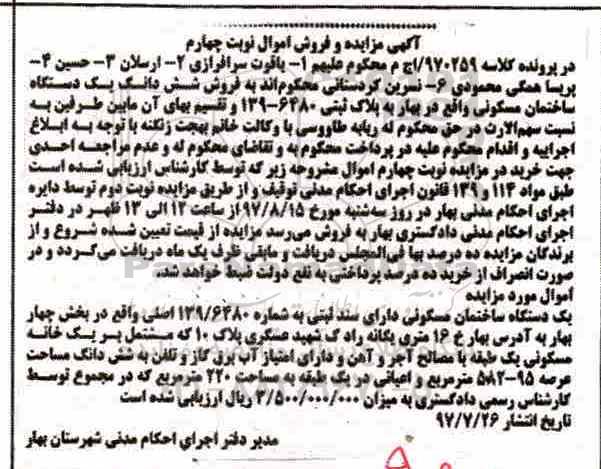 آگهی مزایده و فروش اموال نوبت چهارم
در پرونده کلاسه ۹۷۰۲۵۹/اج م محکوم علیهم ۱- یاقوت سرافرازی ۲- ارسلان ۳- حسین ۴-
پریسا همگی محمودی ۶- نسرین کردستانی محکوم‌اند به فروش شش دانگ یک دستگاه
ساختمان مسکونی واقع در بهار به پلاک ثبتی ۶۴۸۰-۱۳۹ و تقسیم بهای آن مابین طرفین به
نسبت سهم‌الارث در حق محکوم له ربابه طاووسی با وکالت خانم بهجت زنگنه با توجه به ابلاغ
اجراییه و اقدام محکوم علیه در پرداخت محکوم به و تقاضای محکوم له و عدم مراجعه احدی
جهت خرید در مزایده نوبت چهارم اموال مشروحه زیر که توسط کارشناس ارزیابی شده است
طبق مواد ۱۱۴ و ۱۳۹ قانون اجرای احکام مدنی توقیف و از طریق مزایده نوبت دوم توسط دایره
اجرای احکام مدنی بهار در روز سه‌شنبه مورخ ۹۷/۸/۱۵ از ساعت ۱۲ الی ۱۳ ظهر در دفتر
اجرای احکام مدنی دادگستری بهار به فروش می‌رسد مزایده از قیمت تعیین شده شروع و از
برندگان مزایده ده درصد بها فی‌المجلس دریافت و مابقی ظرف یک ماه دریافت می‌گردد و در
صورت انصراف از خرید ده درصد پرداختی به نفع دولت ضبط خواهد شد.
اموال مورد مزایده
یک دستگاه ساختمان مسکونی دارای سند ثبتی به شماره ۱۳۹/۶۴۸۰ اصلی واقع در بخش چهار
بهار به آدرس بهار خ ۱۶ متری یگانه راد ک شهید عسکری پلاک ۱۰ که مشتمل بر یک خانه
مسکونی یک طبقه با مصالح آجر و آهن و دارای امتیاز آب برق گاز و تلفن به شش دانگ مساحت
عرصه مترمربع و اعیانی در یک طبقه به مساحت ۲۲۰ مترمربع که در مجموع توسط
کارشناس رسمی دادگستری به میزان ۳/۵۰۰/۰۰۰/۰۰۰ ریال ارزیابی شده است
تاریخ انتشار ۹۷/۷/۲۶
مدیر دفتر اجرای احکام مدنی شهرستان بهار